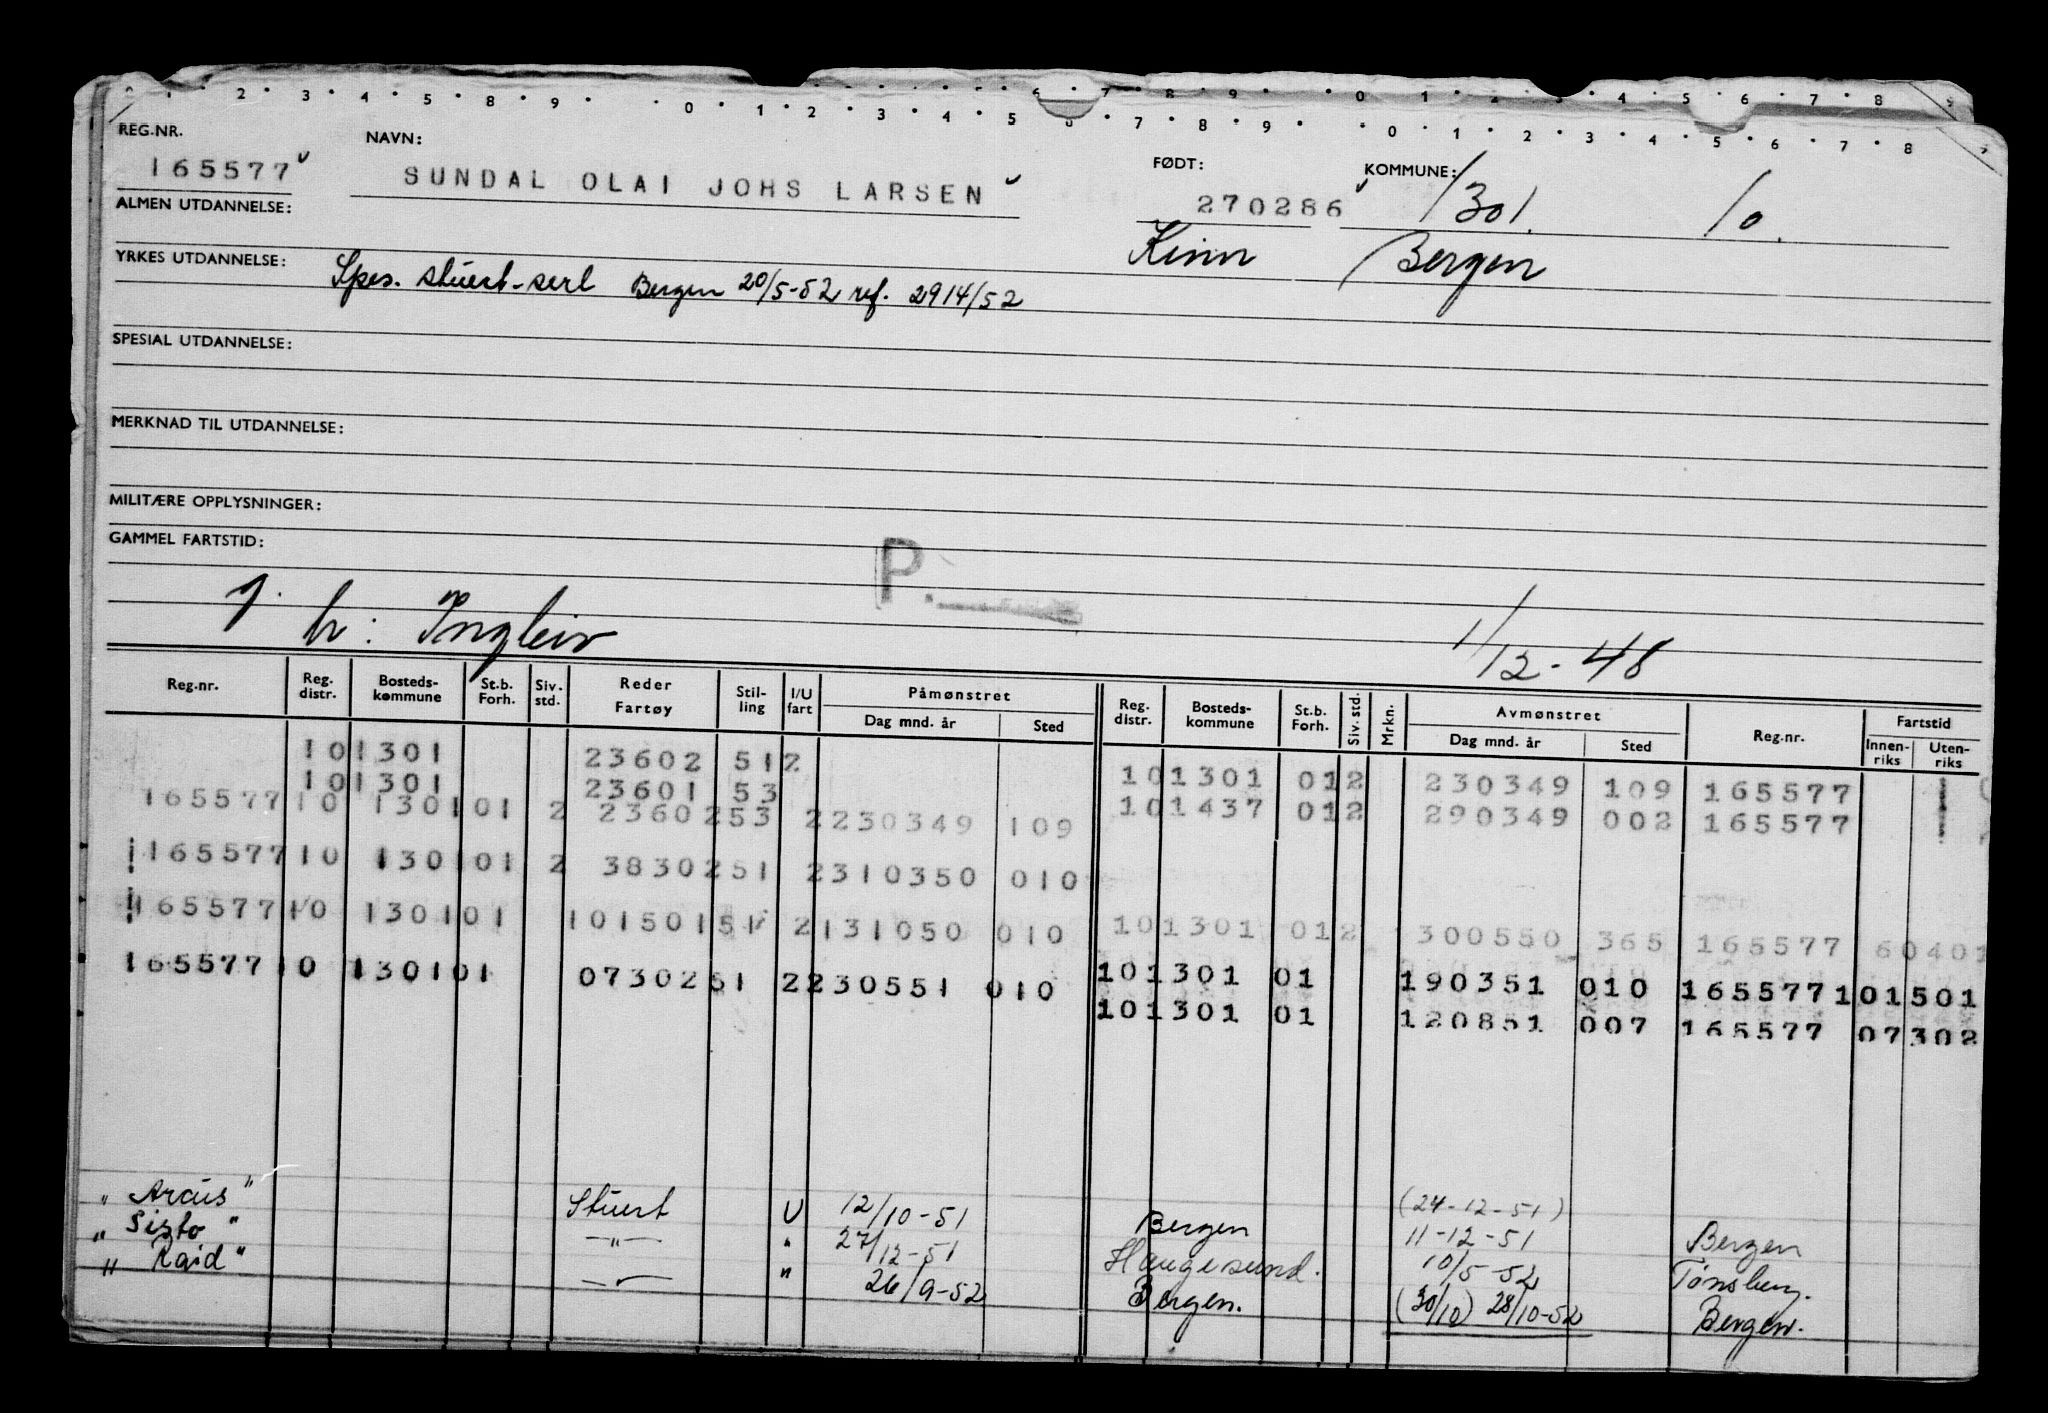 2 3 4 5 8 9 0 1 2 3 4 5 6 7 8 9 0 1 2 3 4 5 6 7 8 9
REG.NR. NAVN: FØDT: KOMMUNE:
165577 SUNDAL OLAI JOHS LARSEN 270286 1301. 10.
ALMEN UTDANNELSE: Kinn Bergen
YRKES UTDANNELSE: Spes. stuert-serl Bergen 20/5-52 ref. 2914/52
SPESIAL UTDANNELSE:
MERKNAD TIL UTDANNELSE:
MILITÆRE OPPLYSNINGER:
GAMMEL FARTSTID:
P.
h: Ingleiv 1/12-48
Reg.nr. Reg. distr. Bosteds-kommune St.b. Forh. Siv. std. Reder Fartøy Stil-ling I/U fart Påmønstret Dag mnd. år Sted Reg. distr. Bosteds-kommune St.b. Forh. Siv. std. Mrkn. Avmønstret Dag mnd. år Sted Reg.nr. Fartstid Innen-riks Uten-riks
101301 23602 512 101301 012 230349 109 165577
101301 23601 53 101437 012 290349 002 165577
165577 10 130101 2 23602 53 2230349 109
165577 10 130101 2 38302 51 2310350 010
165577 10 130101 101501 51 2131050 010 101301 012 300550 365 165577 60401
165577 10 130101 07302 51 2230551 010 101301 01 190351 010 165577 101501
101301 01 120851 007 165577 07302
" Arcus " Stuert U 12/10-51 Bergen (24-12-51) 11-12-51 Bergen
" Sisto " -"- " 27/12-51 Haugesund. 10/5-52 Tønsberg.
" Raid " -"- " 26/9-52 Bergen. (30/10) 28/10-52 Bergen.